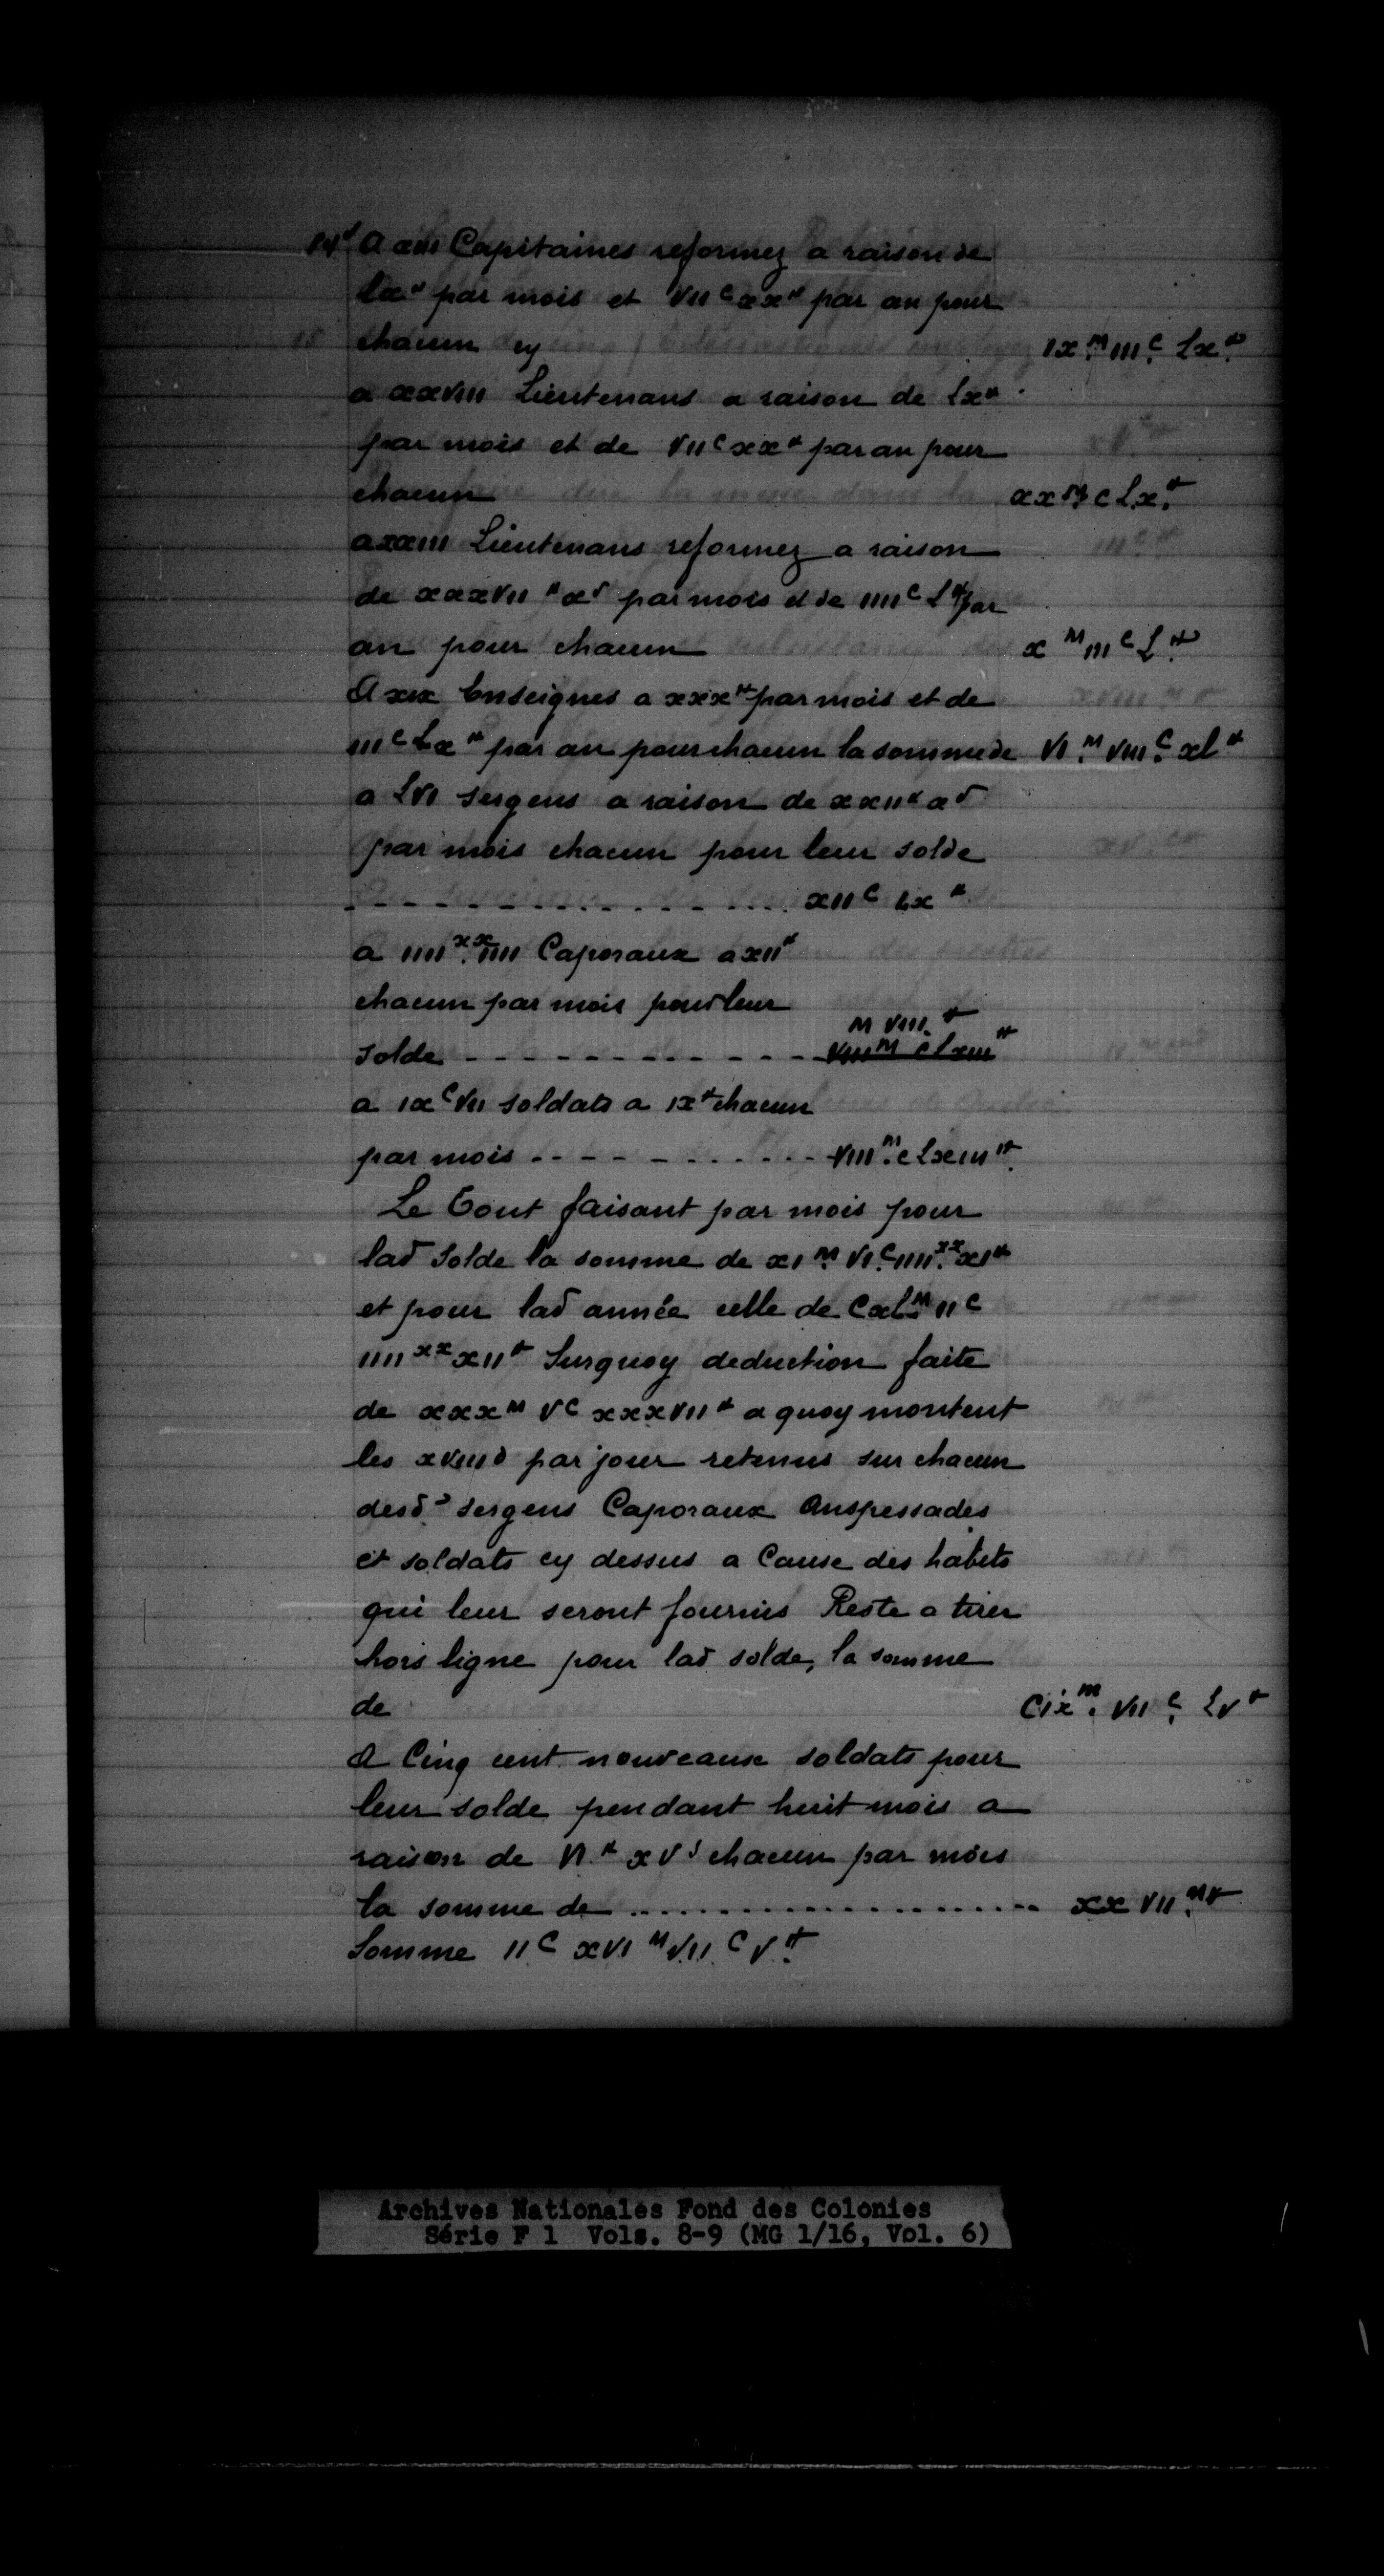 14 A xiii Capitaines reformez a raison de
lx# par mois et VII C xx# par an pour
chacun cy IX.M III.C Lx.#
a xxVIII Lieutenans a raison de Lx#
par mois et de VII C xx# par an pour
chacun xx M C Lx.#
a xxIII Lieutenans reformez a raison
de xxxVII # x s par mois et de IIII C L# par
an pour chacun x M III C L #
A xix Enseignes a xxx# par mois et de
III C Lx # par an pour chacun la somme de VI.M VIII.C xl #
a LVI sergens a raison de xxII# x s
par mois chacun pour leur solde
- - - - - - - - - - - - xII C Lx #
a IIII xx IIII Caporaux a xII#
chacun par mois pour leur
M VIII #
solde - - - - - - - - - - VIII M C lxIII #
a Ix C VII soldats a Ix # chacun
par mois - - - - - - - - - - VIII M. C LxIII #
Le Tout faisant par mois pour
lad solde la somme de xI M. VI.C IIII.xx xI#
et pour lad année celle de Cxl M II C
IIII xx xII # Surquoy deduction faite
de xxx M V C xxxVII # a quoy montent
les xVIII d par jour retenus sur chacun
desd s sergens Caporaux Anspessades
et soldats cy dessus a Cause des habits
qui leur seront fournis Reste a tirer
hors ligne pour lad solde, la somme
de CIx M. VII C. LV #
A Cinq cent nouveaux soldats pour
leur solde pendant huit mois a
raison de VI # xV s chacun par mois
la somme de .................... xx VII M #
Somme II C xVI M VII C V #
Archives Nationales Fond des Colonies
Série F 1 Vols. 8-9 (MG 1/16, Vol. 6)